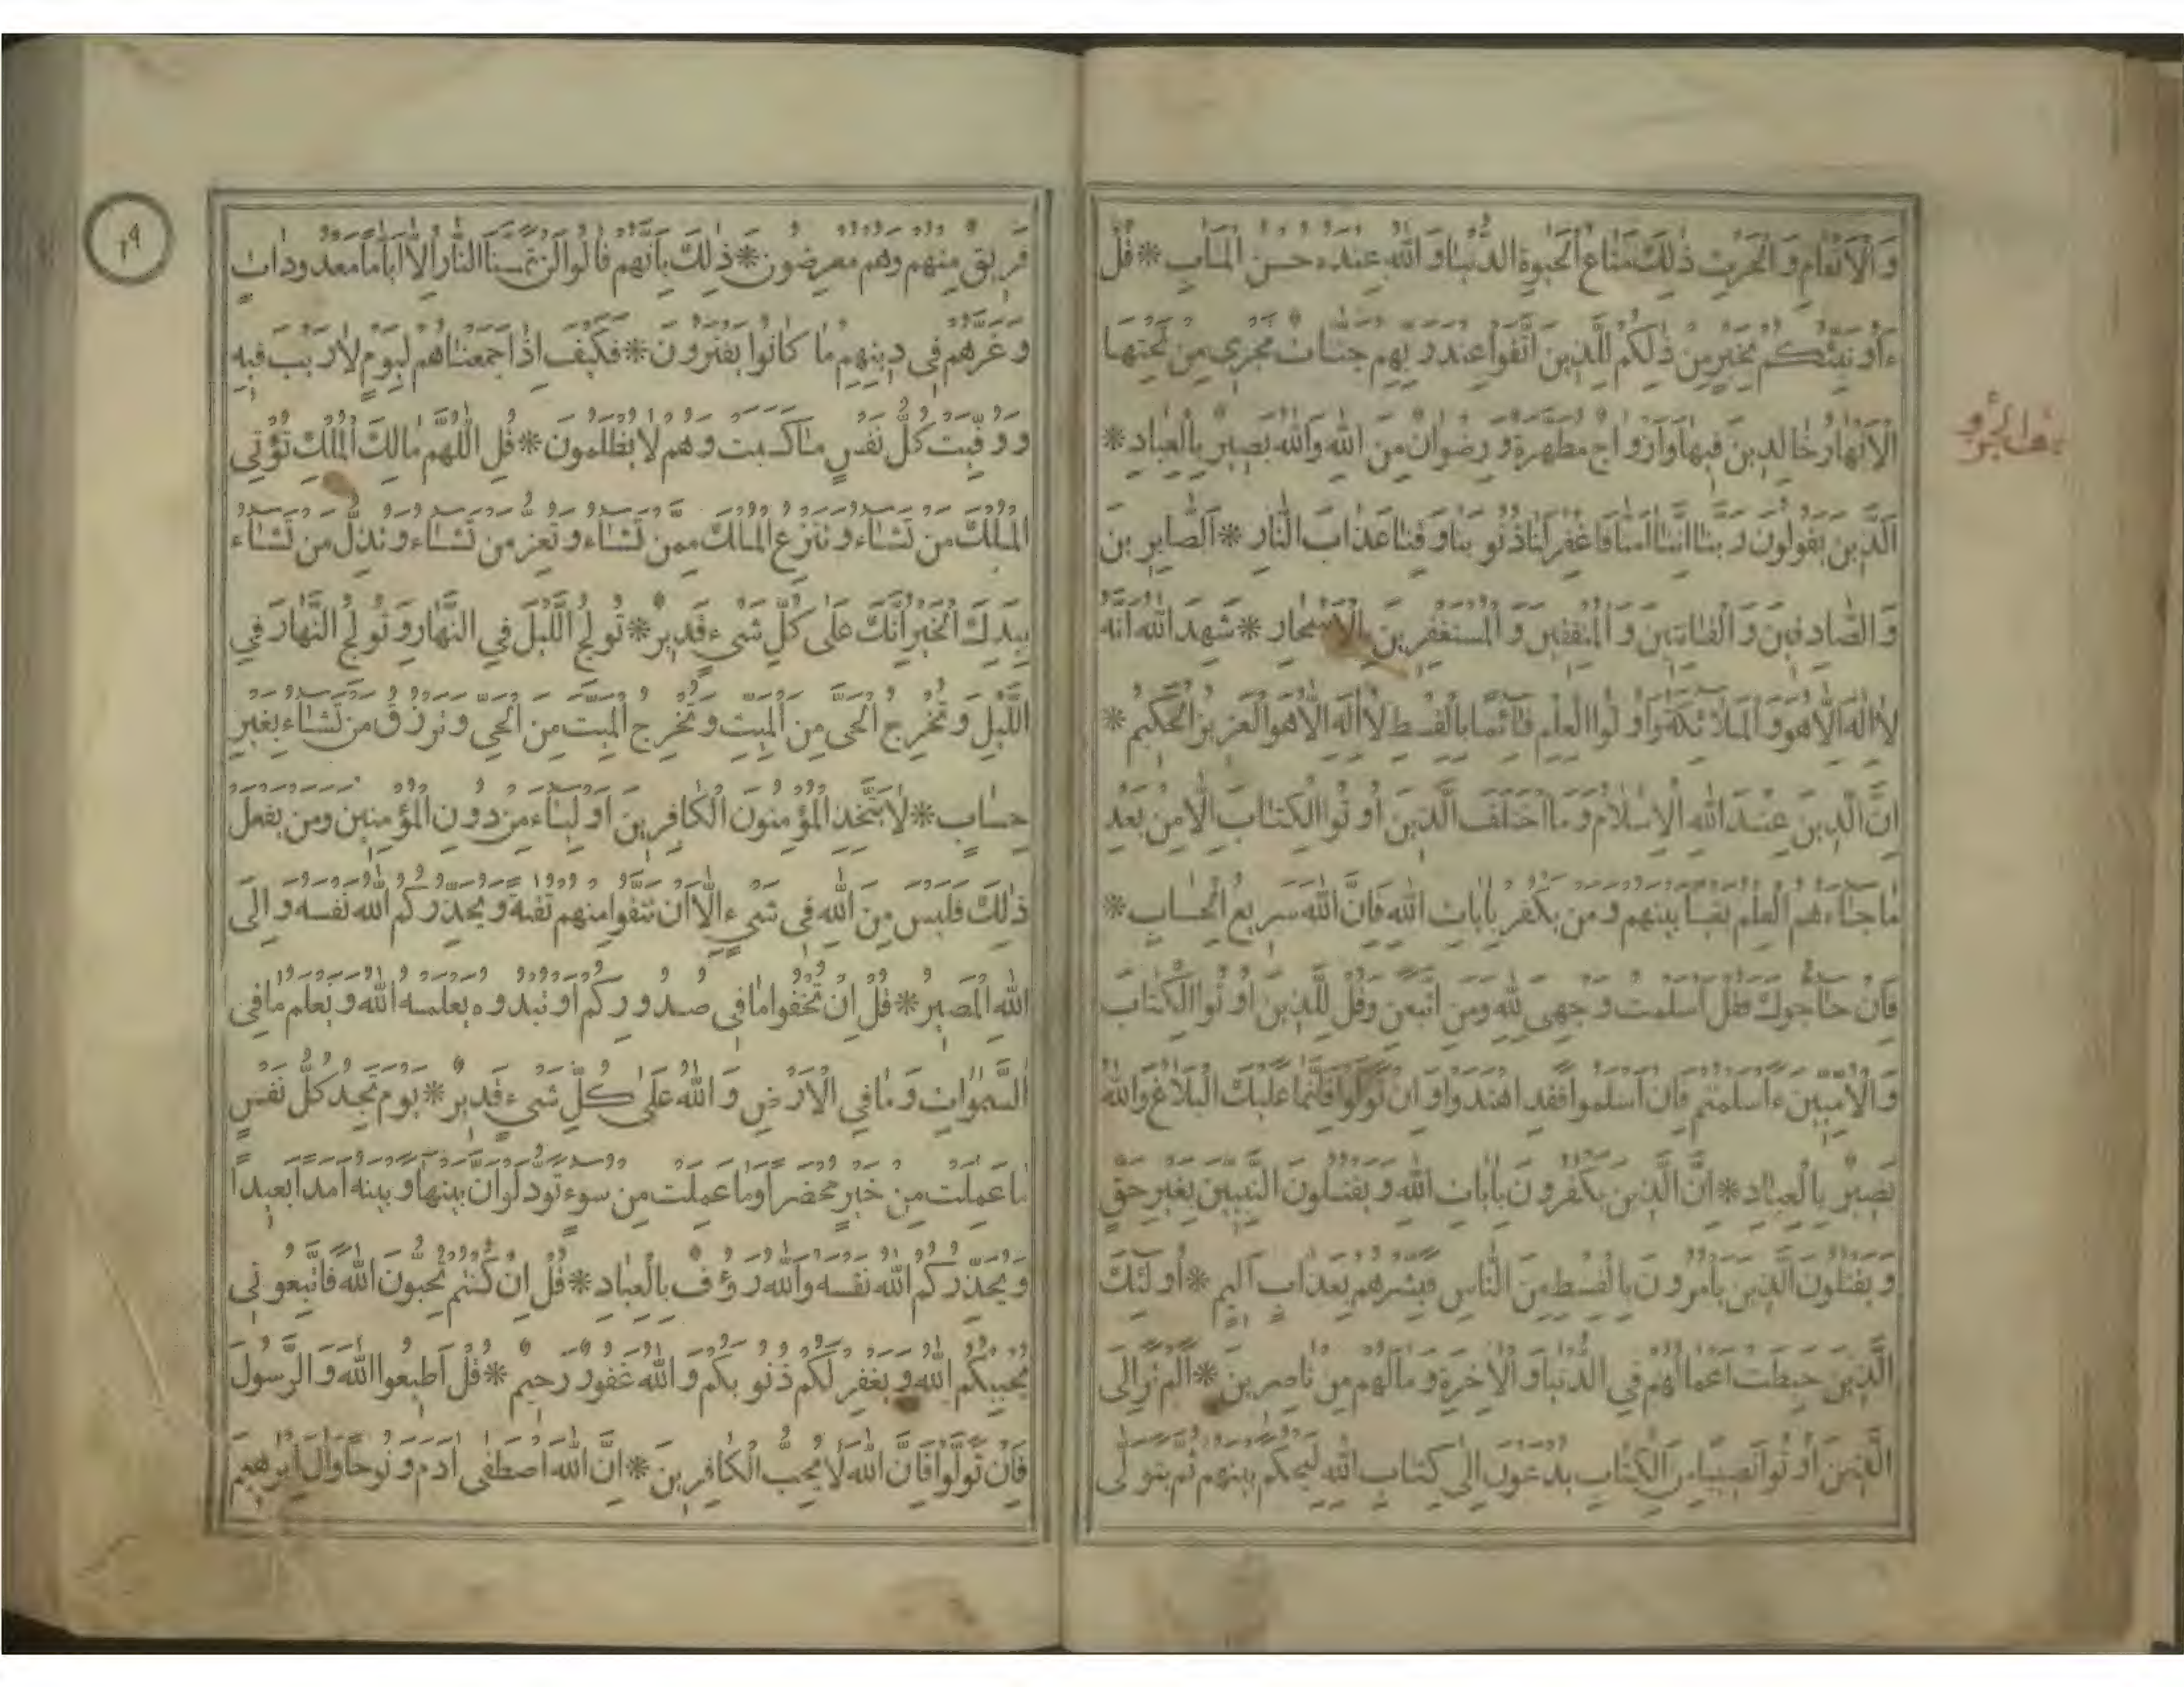 وَالْاَنْعَامِ وَالْحَرْثِ ذٰلِكَ مَتَاعُ الْحَيٰوةِ الدُّنْيَا وَاللّٰهُ عِنْدَهُ حُسْنُ الْمَاٰبِ * قُلْ
ءَاُو نَبِّئُكُمْ بِخَيْرٍ مِنْ ذٰلِكُمْ لِلَّذِينَ اتَّقَوْا عِنْدَ رَبِّهِمْ جَنَّاتٌ تَجْرِي مِنْ تَحْتِهَا
الْاَنْهَارُ خَالِدِينَ فِيهَا وَاَزْوَاجٌ مُطَهَّرَةٌ وَرِضْوَانٌ مِنَ اللّٰهِ وَاللّٰهُ بَصِيرٌ بِالْعِبَادِ *
اَلَّذِينَ يَقُولُونَ رَبَّنَا اِنَّنَا اٰمَنَّا فَاغْفِرْ لَنَا ذُنُوبَنَا وَقِنَا عَذَابَ النَّارِ * اَلصَّابِرِينَ
وَالصَّادِقِينَ وَالْقَانِتِينَ وَالْمُنْفِقِينَ وَالْمُسْتَغْفِرِينَ بِالْاَسْحَارِ * شَهِدَ اللّٰهُ اَنَّهُ
لَا اِلٰهَ اِلَّا هُوَ وَالْمَلَائِكَةُ وَاُولُوا الْعِلْمِ قَائِمًا بِالْقِسْطِ لَا اِلٰهَ اِلَّا هُوَ الْعَزِيزُ الْحَكِيمُ *
اِنَّ الدِّينَ عِنْدَ اللّٰهِ الْاِسْلَامُ وَمَا اخْتَلَفَ الَّذِينَ اُوتُوا الْكِتَابَ اِلَّا مِنْ بَعْدِ
مَا جَاءَهُمُ الْعِلْمُ بَغْيًا بَيْنَهُمْ وَمَنْ يَكْفُرْ بِاٰيَاتِ اللّٰهِ فَاِنَّ اللّٰهَ سَرِيعُ الْحِسَابِ *
فَاِنْ حَاجُّوكَ فَقُلْ اَسْلَمْتُ وَجْهِيَ لِلّٰهِ وَمَنِ اتَّبَعَنِ وَقُلْ لِلَّذِينَ اُوتُوا الْكِتَابَ
وَالْاُمِّيِّينَ ءَاَسْلَمْتُمْ فَاِنْ اَسْلَمُوا فَقَدِ اهْتَدَوْا وَاِنْ تَوَلَّوْا فَاِنَّمَا عَلَيْكَ الْبَلَاغُ وَاللّٰهُ
بَصِيرٌ بِالْعِبَادِ * اِنَّ الَّذِينَ يَكْفُرُونَ بِاٰيَاتِ اللّٰهِ وَيَقْتُلُونَ النَّبِيِّينَ بِغَيْرِ حَقٍّ
وَيَقْتُلُونَ الَّذِينَ يَأْمُرُونَ بِالْقِسْطِ مِنَ النَّاسِ فَبَشِّرْهُمْ بِعَذَابٍ اَلِيمٍ * اُولٰئِكَ
الَّذِينَ حَبِطَتْ اَعْمَالُهُمْ فِي الدُّنْيَا وَالْاٰخِرَةِ وَمَا لَهُمْ مِنْ نَاصِرِينَ * اَلَمْ تَرَ اِلَى
الَّذِينَ اُوتُوا نَصِيبًا مِنَ الْكِتَابِ يُدْعَوْنَ اِلٰى كِتَابِ اللّٰهِ لِيَحْكُمَ بَيْنَهُمْ ثُمَّ يَتَوَلّٰى
فَرِيقٌ مِنْهُمْ وَهُمْ مُعْرِضُونَ * ذٰلِكَ بِاَنَّهُمْ قَالُوا لَنْ تَمَسَّنَا النَّارُ اِلَّا اَيَّامًا مَعْدُودَاتٍ
وَغَرَّهُمْ فِي دِينِهِمْ مَا كَانُوا يَفْتَرُونَ * فَكَيْفَ اِذَا جَمَعْنَاهُمْ لِيَوْمٍ لَا رَيْبَ فِيهِ
وَوُفِّيَتْ كُلُّ نَفْسٍ مَا كَسَبَتْ وَهُمْ لَا يُظْلَمُونَ * قُلِ اللّٰهُمَّ مَالِكَ الْمُلْكِ تُؤْتِي
الْمُلْكَ مَنْ تَشَاءُ وَتَنْزِعُ الْمُلْكَ مِمَّنْ تَشَاءُ وَتُعِزُّ مَنْ تَشَاءُ وَتُذِلُّ مَنْ تَشَاءُ
بِيَدِكَ الْخَيْرُ اِنَّكَ عَلٰى كُلِّ شَيْءٍ قَدِيرٌ * تُولِجُ اللَّيْلَ فِي النَّهَارِ وَتُولِجُ النَّهَارَ فِي
اللَّيْلِ وَتُخْرِجُ الْحَيَّ مِنَ الْمَيِّتِ وَتُخْرِجُ الْمَيِّتَ مِنَ الْحَيِّ وَتَرْزُقُ مَنْ تَشَاءُ بِغَيْرِ
حِسَابٍ * لَا يَتَّخِذِ الْمُؤْمِنُونَ الْكَافِرِينَ اَوْلِيَاءَ مِنْ دُونِ الْمُؤْمِنِينَ وَمَنْ يَفْعَلْ
ذٰلِكَ فَلَيْسَ مِنَ اللّٰهِ فِي شَيْءٍ اِلَّا اَنْ تَتَّقُوا مِنْهُمْ تُقٰيةً وَيُحَذِّرُكُمُ اللّٰهُ نَفْسَهُ وَاِلَى
اللّٰهِ الْمَصِيرُ * قُلْ اِنْ تُخْفُوا مَا فِي صُدُورِكُمْ اَوْ تُبْدُوهُ يَعْلَمْهُ اللّٰهُ وَيَعْلَمُ مَا فِي
السَّمٰوَاتِ وَمَا فِي الْاَرْضِ وَاللّٰهُ عَلٰى كُلِّ شَيْءٍ قَدِيرٌ * يَوْمَ تَجِدُ كُلُّ نَفْسٍ
مَا عَمِلَتْ مِنْ خَيْرٍ مُحْضَرًا وَمَا عَمِلَتْ مِنْ سُوءٍ تَوَدُّ لَوْ اَنَّ بَيْنَهَا وَبَيْنَهُ اَمَدًا بَعِيدًا
وَيُحَذِّرُكُمُ اللّٰهُ نَفْسَهُ وَاللّٰهُ رَؤُفٌ بِالْعِبَادِ * قُلْ اِنْ كُنْتُمْ تُحِبُّونَ اللّٰهَ فَاتَّبِعُونِي
يُحْبِبْكُمُ اللّٰهُ وَيَغْفِرْ لَكُمْ ذُنُوبَكُمْ وَاللّٰهُ غَفُورٌ رَحِيمٌ * قُلْ اَطِيعُوا اللّٰهَ وَالرَّسُولَ
فَاِنْ تَوَلَّوْا فَاِنَّ اللّٰهَ لَا يُحِبُّ الْكَافِرِينَ * اِنَّ اللّٰهَ اصْطَفٰى اٰدَمَ وَنُوحًا وَاٰلَ اِبْرٰهِيمَ